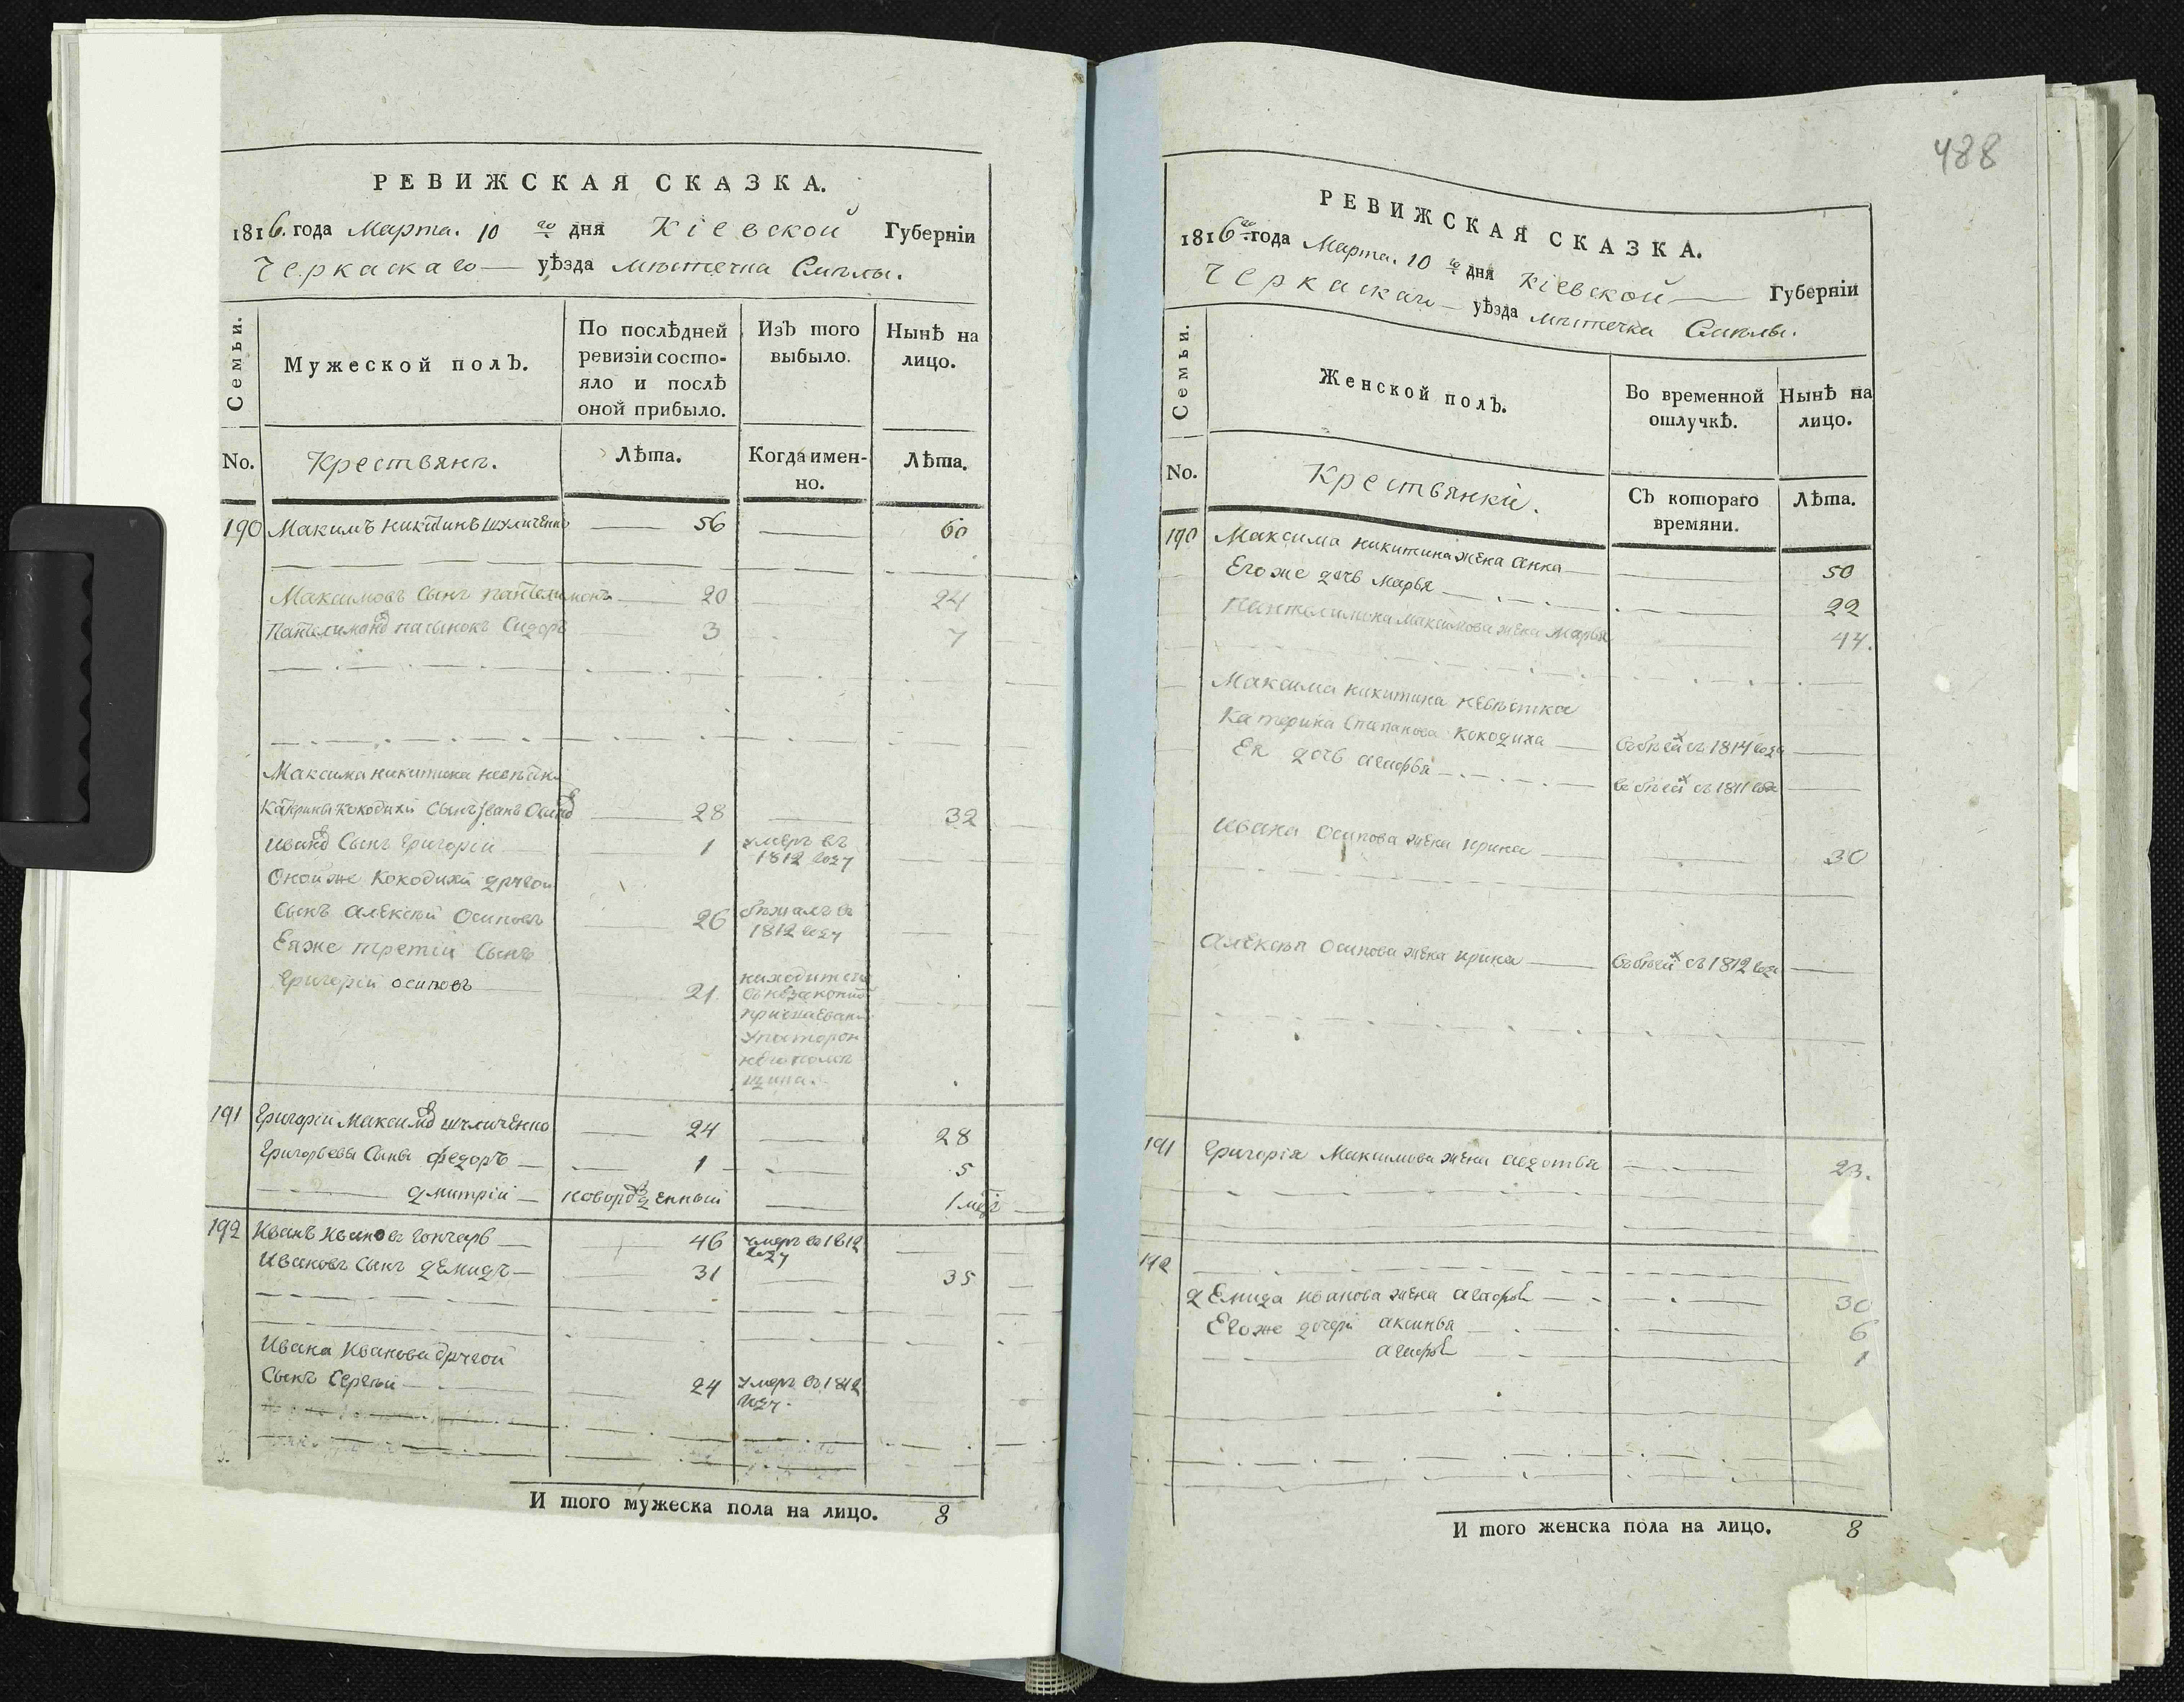 488
РЕВИЖСКАЯ СКАЗКА.
1816. года Марта. 10 го дня Кіевской Губерніи
Черкаскаго уѣзда мѣстечка Смѣлы.
Семьи.
Мужеской полЪ.
По послѣдней
ревизіи состо-
яло и послѣ
оной прибыло.
ИзЪ того
выбыло.
Нынѣ на
лицо.
No.
Крестьянъ.
Лѣта.
Когда имен-
но.
Лѣта.
190 МаксимЪ никитинЪ 56 60
Максимовъ Сынъ пантелимонъ 20 24
пасынокъ Сидоръ 3 7
Максима никитина
Кокодихи СынЪ Иванъ 28 32
Сынъ Григорій 1 умеръ въ
1812 году
Оной же Кокодихи другой
Сынъ Алексѣй Осиповъ 26 бѣжалъ въ
1812 году
Еяже третій Сынъ
Григорій осиповъ 21 находится
191 Григорій Максимов 24 28
Григорьевы Сыны федоръ 1 5
дмитрій новорожденный 1 мѣ
192 Иванъ Ивановъ гончаръ 46 умеръ въ 1812
году
Ивановъ Сынъ демидъ 31 35
Ивана Иванова другой
Сынъ Сергѣй 24 умеръ въ 1812
году.
И того мужеска пола на лицо. 8
РЕВИЖСКАЯ СКАЗКА.
1816 го года Марта. 10 го дня Кіевской Губерніи
Черкаскаго уѣзда мѣстечка Смѣлы.
Семьи.
Женской полЪ.
Во временной
отлучкѣ.
Нынѣ на
лицо.
No.
Крестьянки.
СЪ котораго
времяни.
Лѣта.
190 Максима никитина жена Анна 50
Его же дочь марья 22
Пантелимона максимова жена марья 44.
Максима никитина невѣстка
Катерина Степанова Кокодиха въ бѣгах съ 1814 года
Ея дочь агафья въ бѣгах съ 1811 года
Ивана Осипова жена ирина 30
Алексѣя Осипова жена ирина въ бѣгах съ 1812 года
191 Григорія Максимова жена авдотья 23.
192
демида иванова жена агафья 30
Его же дочери аксинья 6
агафья 1
И того женска пола на лицо. 8